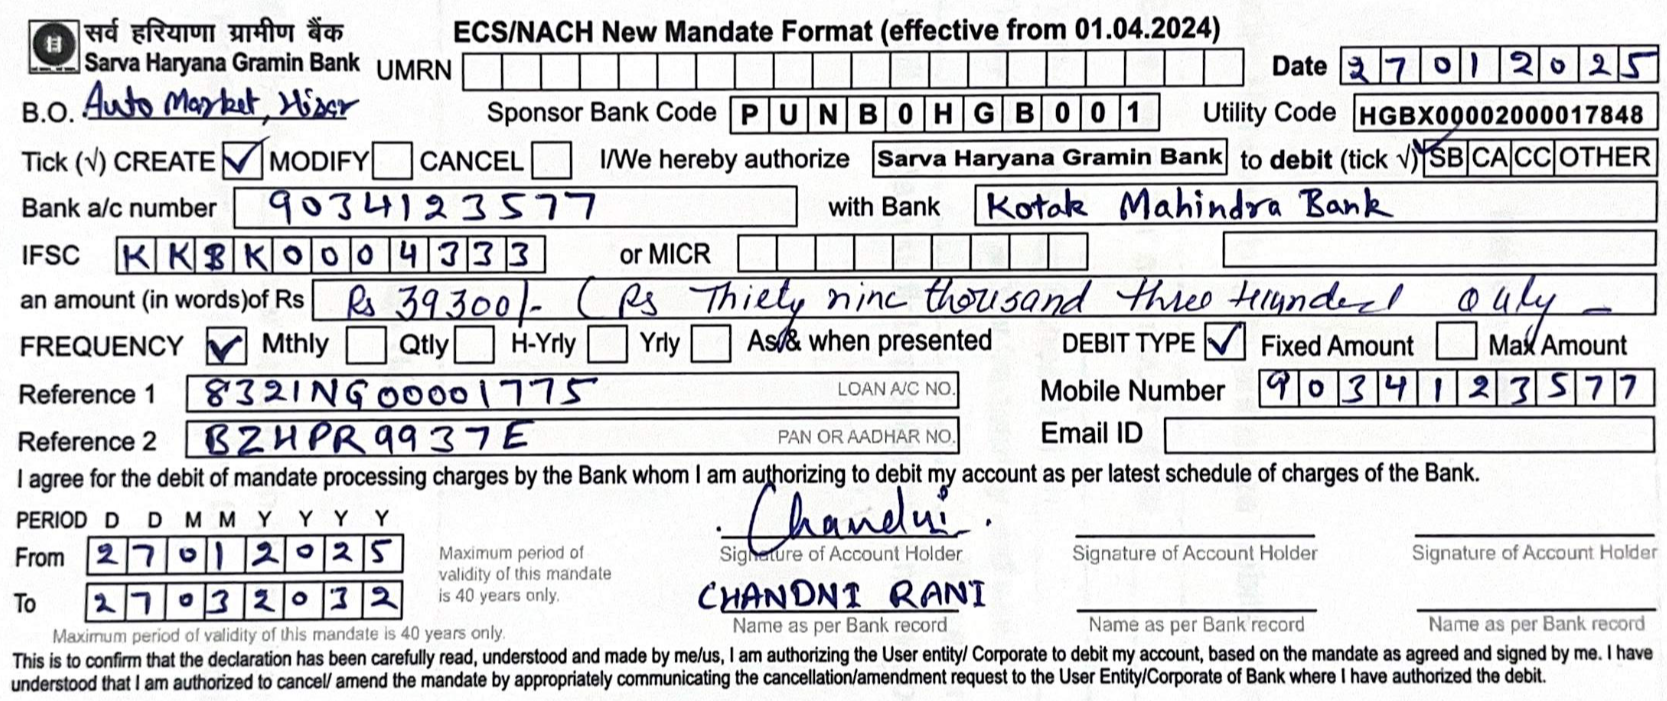 सर्व हरियाणा ग्रामीण बैंक
Sarva Haryana Gramin Bank
ECS/NACH New Mandate Format (effective from 01.04.2024)
UMRN
Date 27012025
B.O. Auto Market, Hisar
Sponsor Bank Code PUNB0HGB001
Utility Code HGBX00002000017848
Tick (√) CREATE ✓ MODIFY CANCEL I/We hereby authorize Sarva Haryana Gramin Bank to debit (tick √) ✓ SB CA CC OTHER
Bank a/c number 9034123577 with Bank Kotak Mahindra Bank
IFSC KKBK0004333 or MICR
an amount (in words)of Rs Rs 39300/- ( Rs Thiety nine thousand three Hundred only –
FREQUENCY ✓ Mthly Qtly H-Yrly Yrly As & when presented DEBIT TYPE ✓ Fixed Amount Max Amount
Reference 1 8321NG00001775 LOAN A/C NO. Mobile Number 9034123577
Reference 2 BZHPR9937E PAN OR AADHAR NO. Email ID
I agree for the debit of mandate processing charges by the Bank whom I am authorizing to debit my account as per latest schedule of charges of the Bank.
PERIOD D D M M Y Y Y Y
From 27012025
To 27032032
Maximum period of
validity of this mandate
is 40 years only.
Maximum period of validity of this mandate is 40 years only.
Chandni
Signature of Account Holder Signature of Account Holder Signature of Account Holder
CHANDNI RANI
Name as per Bank record Name as per Bank record Name as per Bank record
This is to confirm that the declaration has been carefully read, understood and made by me/us, I am authorizing the User entity/ Corporate to debit my account, based on the mandate as agreed and signed by me. I have
understood that I am authorized to cancel/ amend the mandate by appropriately communicating the cancellation/amendment request to the User Entity/Corporate of Bank where I have authorized the debit.